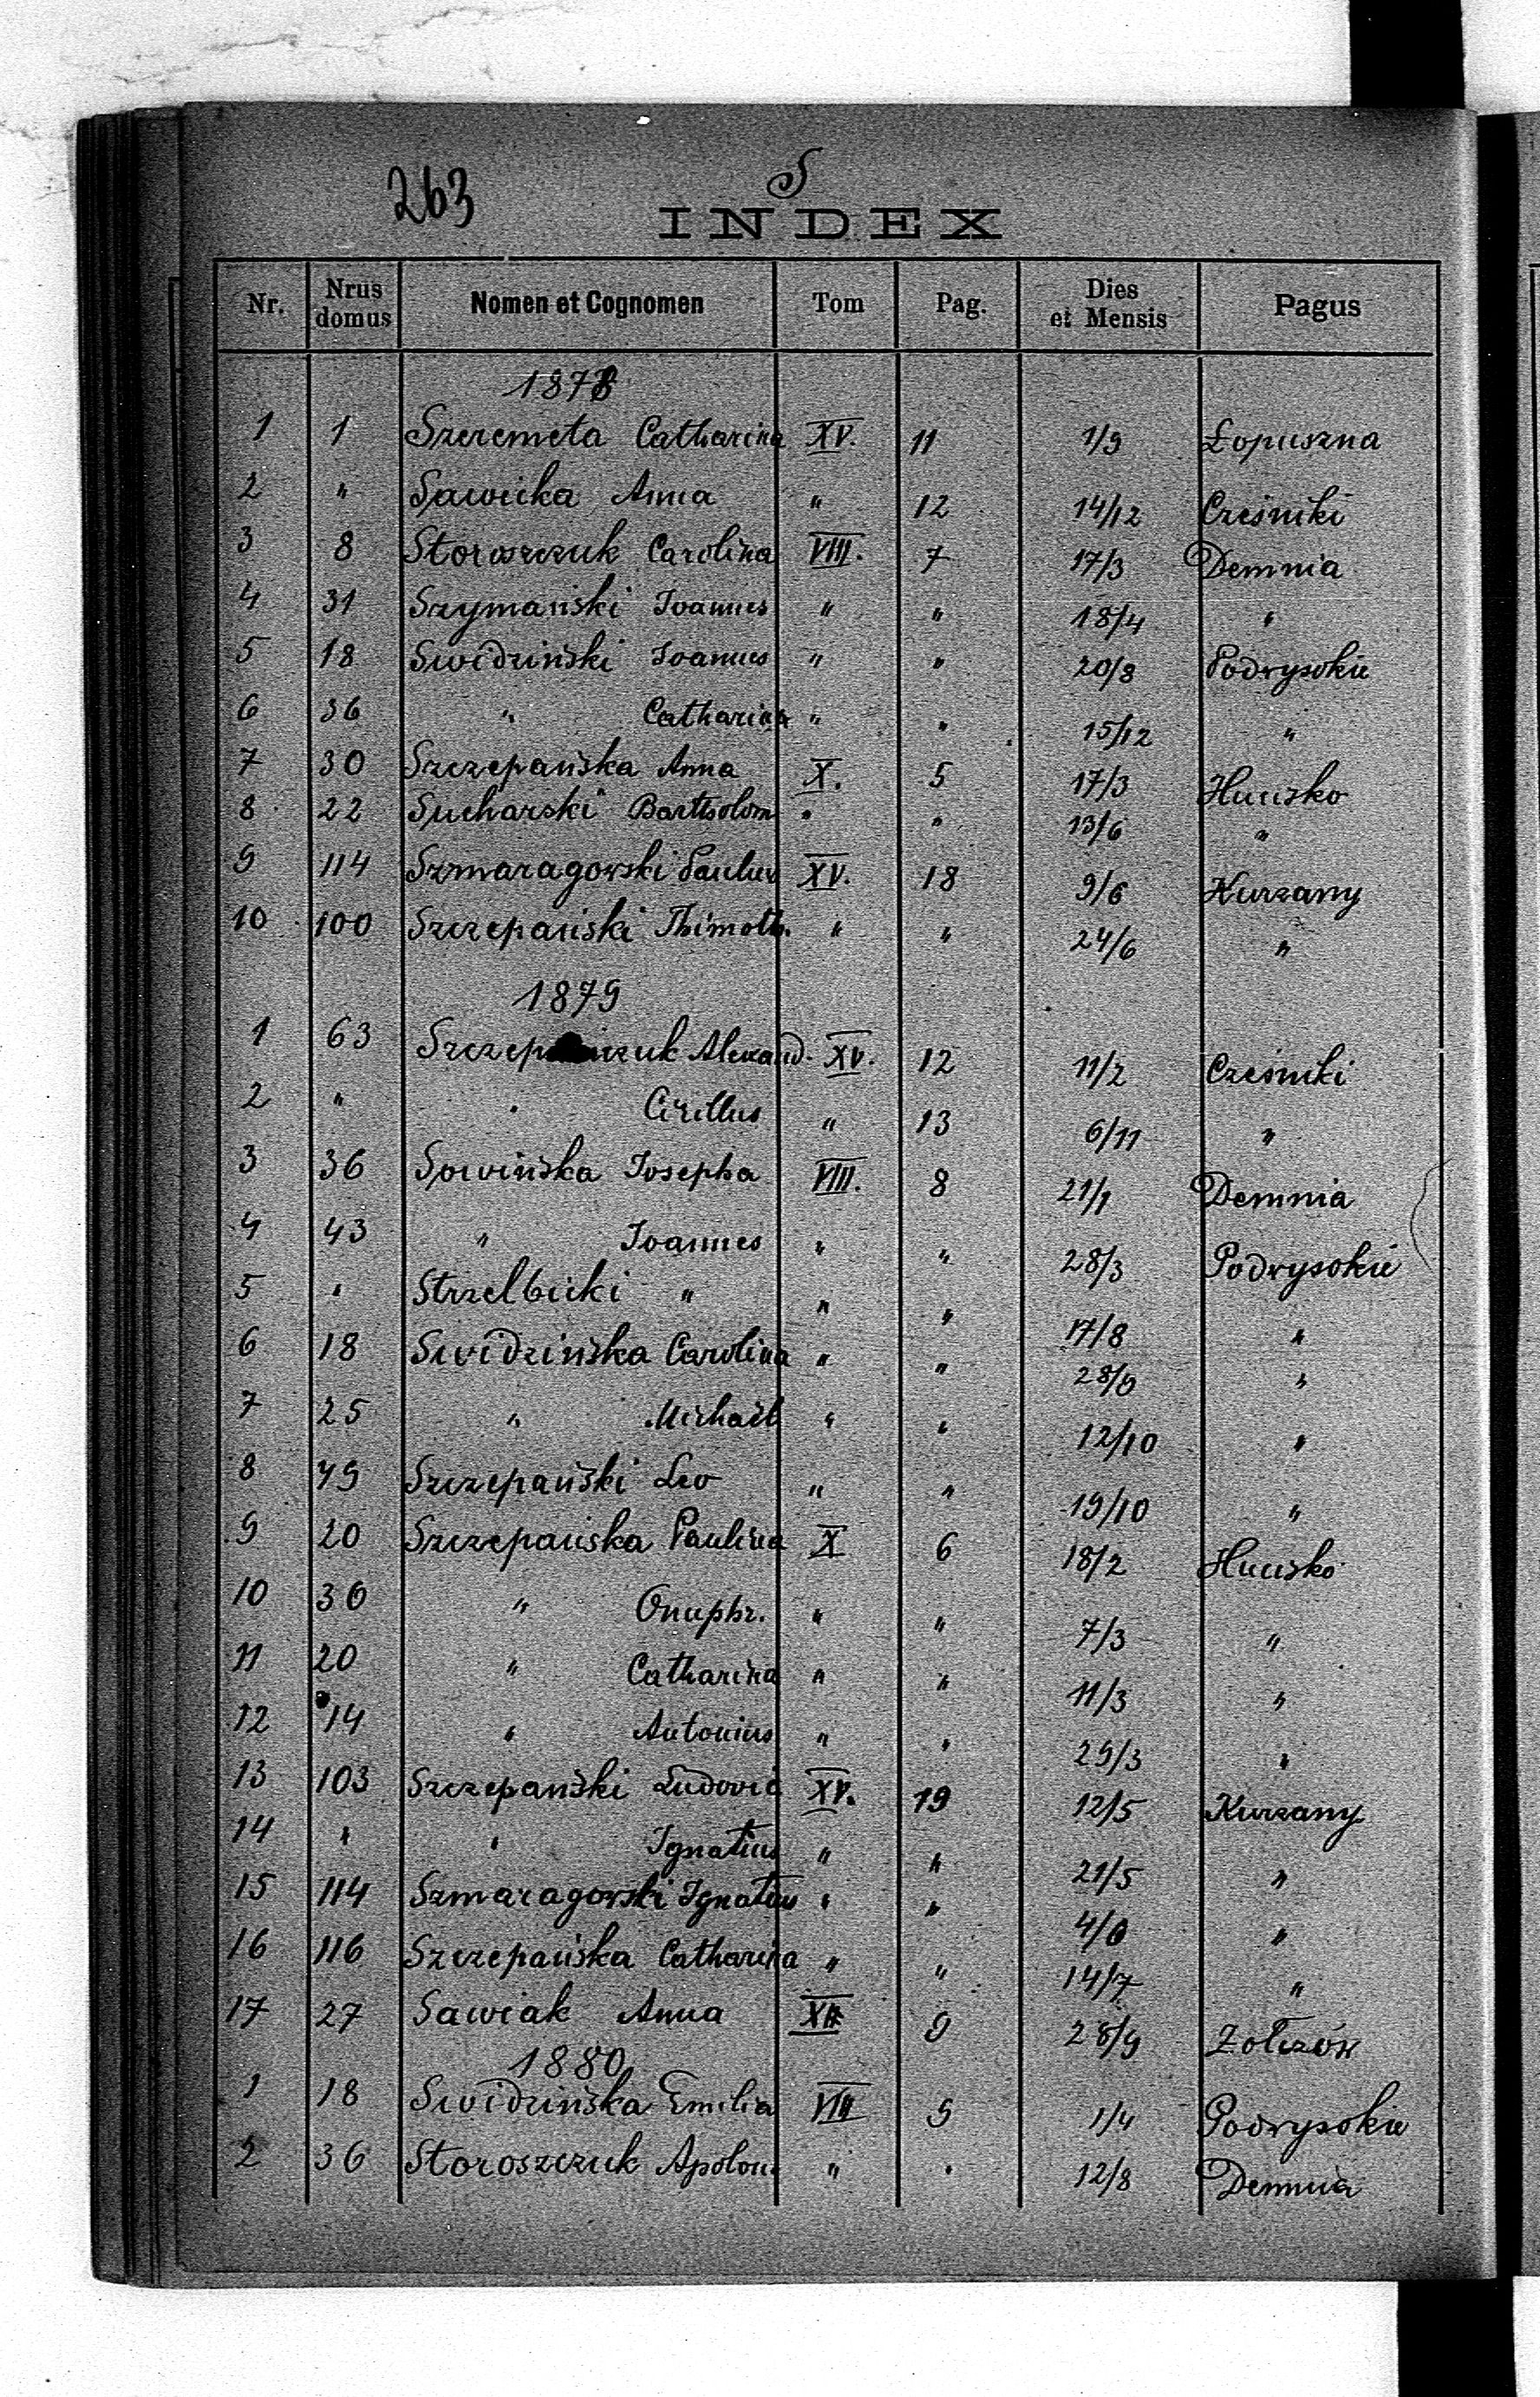 263
S
INDEX
Nr. Nrus domus Nomen et Cognomen Tom Pag. Dies et Mensis Pagus
1878
1 1 Szeremeta Catharina XV. 11 1/9 Łopuszna
2 " Sawicka Anna " 12 14/12 Cześniki
3 8 Storoszczuk Carolina VIII. 7 17/3 Demnia
4 31 Szymański Joannes " " 18/4 "
5 18 Swidziński Joannes " " 20/8 Podwysokie
6 36 " Catharina " " 15/12 "
7 30 Szczepańska Anna X. 5 17/3 Hucisko
8 22 Sucharski Bartholom " " 13/6 "
9 114 Szmaragowski Paulus XV. 18 9/6 Kurzany
10 100 Szczepański Thimoth. " " 24/6 "
1879
1 63 Alexand. XV. 12 11/2 Cześniki
2 " " Cirillus " 13 6/11 "
3 36 Sowińska Josepha VIII. 8 21/1 Demnia
4 43 " Joannes " " 28/3 Podwysokie
5 " Strzelbicki " " " 17/8 "
6 18 Swidzińska Carolina " " "
7 25 " Michaël " " 12/10 "
8 49 Szczepański Leo " " 19/10 "
9 20 Szczepańska Paulina X 6 18/2 Hucisko
10 30 " Onuphr. " " 7/3 "
11 20 " Catharina " " 11/3 "
12 14 " Antonius " " 29/3 "
13 103 Szczepański Ludovic XV. 19 12/5 Kurzany
14 " " Ignatius " " 21/5 "
15 114 Szmaragowski Ignatius " " "
16 116 Szczepańska Catharina " " 14/7 "
17 27 Sawiak Anna 9 28/9 Zołczów
1880
1 18 Swidzińska Emilia VIII 9 1/4 Podwysokie
2 36 Storoszczuk Apolon. " " 12/8 Demnia